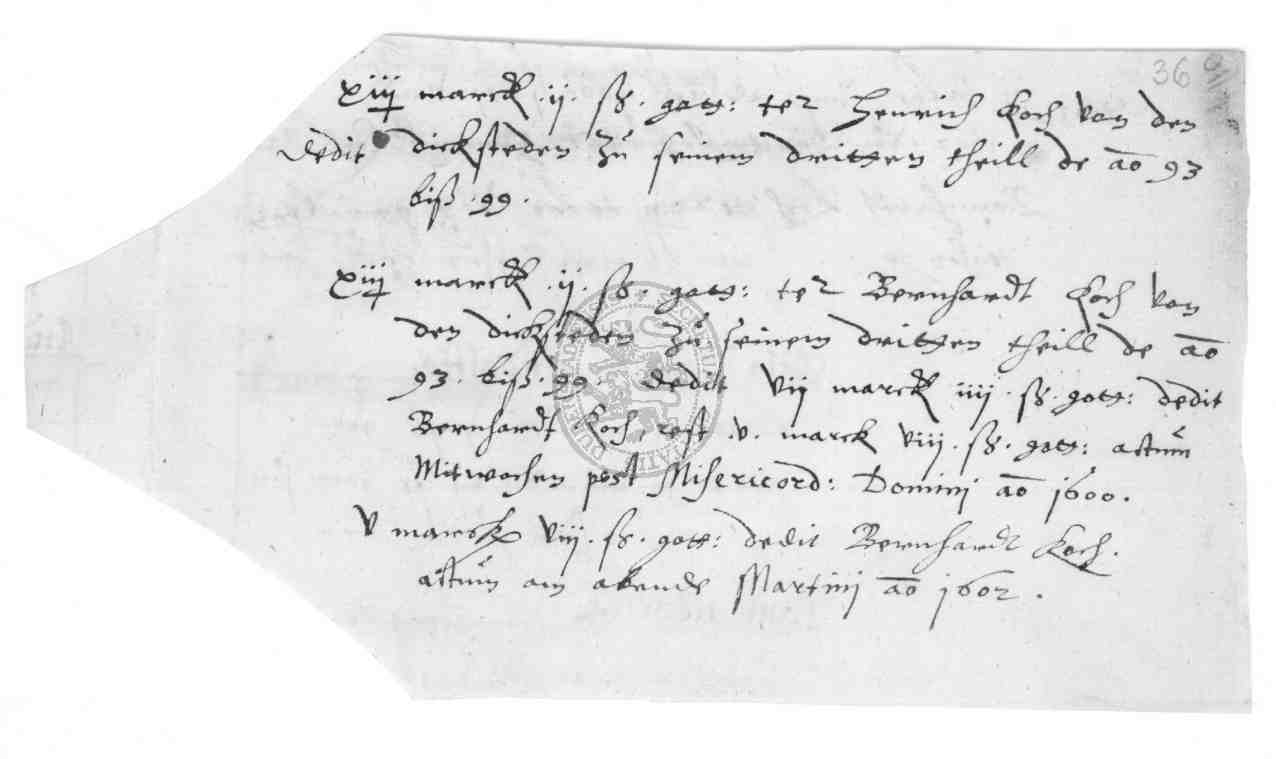 36
xiij marck .ij. ß. gott: ter Henrich Koch von den
dedit dicksteden zu seinem dritten theill de ao 93
biß .99.
xiij marck .ij. ß. gott: ter Bernhardt Koch von
den dicksteden zu seinem dritten theill de ao
93. biß .99. dedit vij marck iiij. ß. gott: dedit
Bernhardt Koch, rest .v. marck viij. ß. gott: actum
Mitwochen post Misericord: Domini ao 1600.
v marck viij. ß. gott: dedit Bernhardt Koch.
actum am abende Martinj ao 1602.